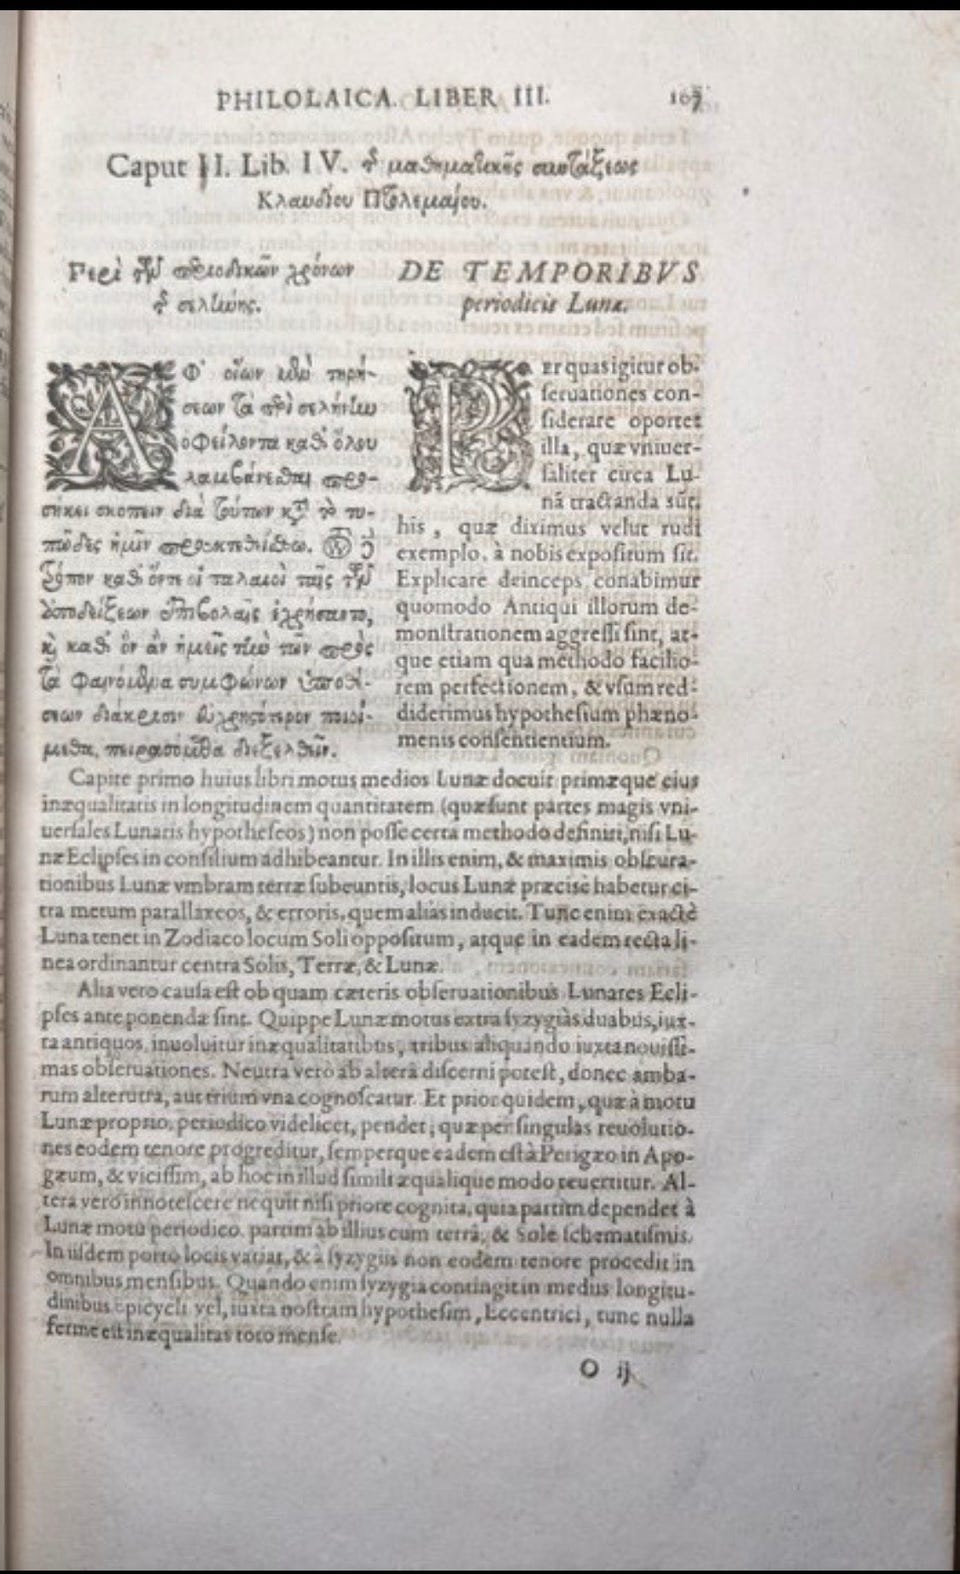 PHILOLAICA. LIBER III. 107
Caput II. Lib. IV. τ͂ μαθηματικῆς συντάξεως
Κλαυδίου Πτολεμαίου.
Περὶ τῶν περιοδικῶν χρόνων
τ͂ σελήνης.
ΑΦ' οἵων μὲν τηρή-
σεων τὰ περὶ σελήνην
ὀφείλοντα καθ' ὅλου
λαμβάνεσθαι προσ-
ήκει σκοπεῖν διὰ τούτων κατὰ τὸ τυ-
πῶδες ἡμῖν προεκτεθείσθω. ὃν δὲ
τρόπον καθ' ὅν τε οἱ παλαιοὶ ταῖς τῶν
ἀποδείξεων ἐπιβολαῖς ἐχρήσαντο,
κὶ καθ' ὃν ἂν ἡμεῖς τὴν τῶν πρὸς
τὰ φαινόμενα συμφώνων ὑποθέ-
σεων διάκρισιν εὐχρηστότερον ποιοί-
μεθα, πειρασόμεθα διεξελθεῖν.
DE TEMPORIBVS
periodicis Lunæ.
PEr quas igitur ob-
seruationes con-
siderare oportet
illa, quæ vniuer-
saliter circa Lu-
nā tractanda sūt,
his, quæ diximus velut rudi
exemplo, à nobis expositum sit.
Explicare deinceps conabimur
quomodo Antiqui illorum de-
monstrationem aggressi sint, at-
que etiam qua methodo facilio-
rem perfectionem, & vsum red-
diderimus hypothesium phæno-
menis consentientium.
Capite primo huius libri motus medios Lunæ docuit primæque eius
inæqualitatis in longitudinem quantitatem (quæ sunt partes magis vni-
uersales Lunaris hypotheseos) non posse certa methodo definiri, nisi Lu-
næ Eclipses in consilium adhibeantur. In illis enim, & maximis obscura-
tionibus Lunæ vmbram terræ subeuntis, locus Lunæ præcisè habetur ci-
tra metum parallaxeos, & erroris, quem alias inducit. Tunc enim exactè
Luna tenet in Zodiaco locum Soli oppositum, atque in eadem recta li-
nea ordinantur centra Solis, Terræ, & Lunæ.
Alia vero causa est ob quam cæteris obseruationibus Lunares Ecli-
pses anteponendæ sint. Quippe Lunæ motus extra syzygias duabus, iux-
ta antiquos, inuoluitur inæqualitatibus, tribus aliquando iuxta nouissi-
mas obseruationes. Neutra verò ab alterâ discerni potest, donec amba-
rum alterutra, aut trium vna cognoscatur. Et prior quidem, quæ à motu
Lunæ proprio, periodico videlicet, pendet, quæ per singulas reuolutio-
nes eodem tenore progreditur, semperque eadem est à Perigæo in Apo-
gæum, & vicissim, ab hoc in illud simili æqualique modo reuertitur. Al-
tera verò innotescere nequit nisi priore cognita, quia partim dependet à
Lunæ motu periodico, partim ab illius cum terrâ, & Sole schematismis.
In iisdem porro locis variat, & à syzygiis non eodem tenore procedit in
omnibus mensibus. Quando enim syzygia contingit in mediis longitu-
dinibus Epicycli vel, iuxta nostram hypothesim, Eccentrici, tunc nulla
ferme est inæqualitas toto mense.
O ij